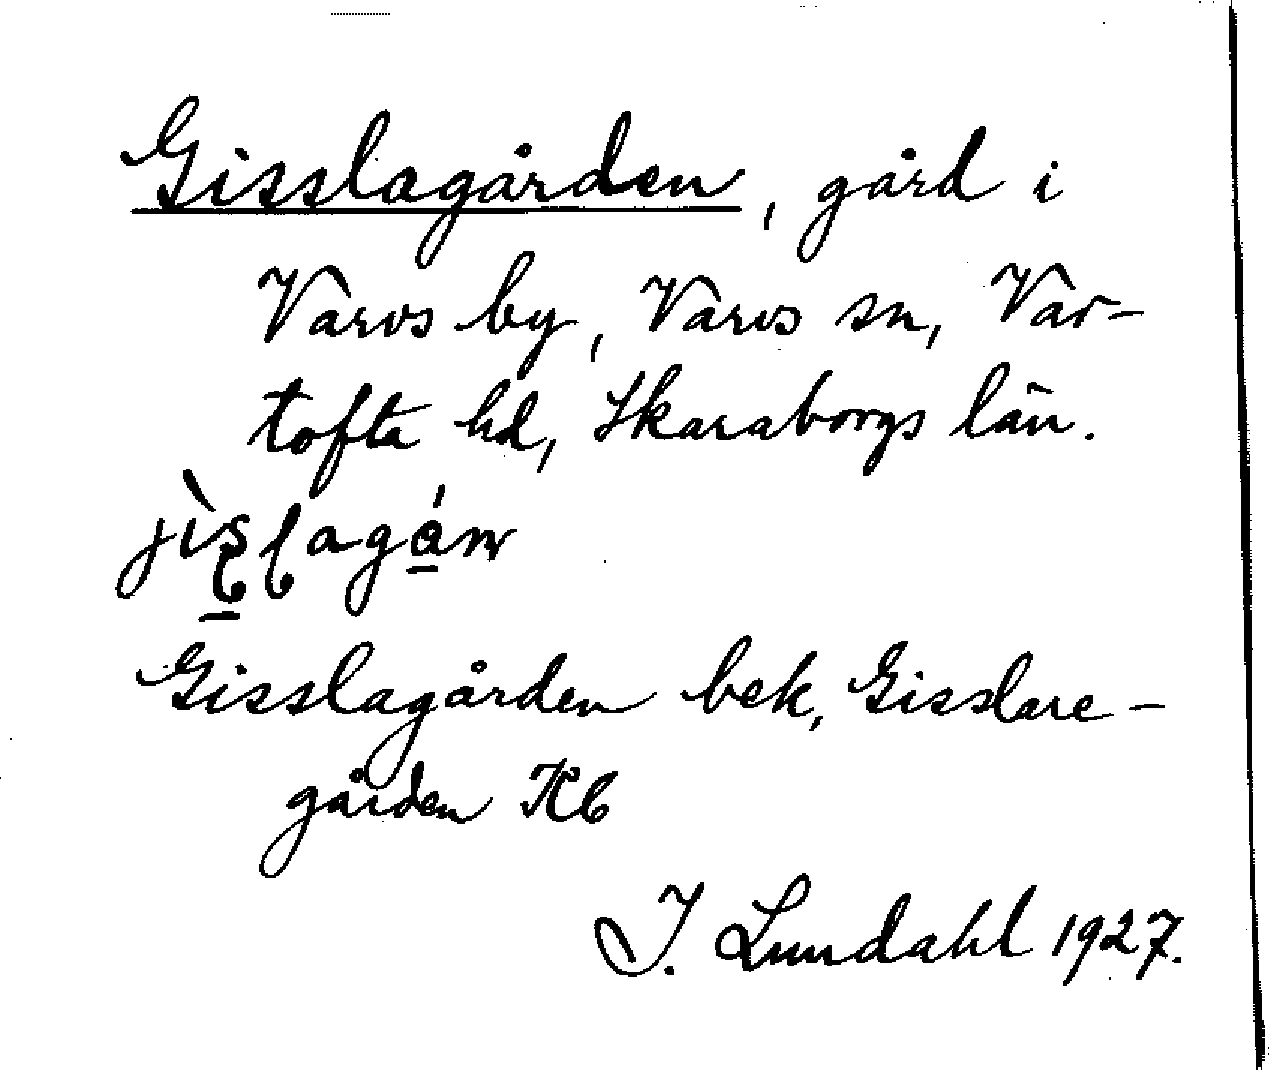 Gisslagården, gård i
Varvs by, Varvs sn, Var-
tofta hd, Skaraborgs län.
Gisslagården bek, Gisslare-
gården Kb
I. Lundahl 1927.